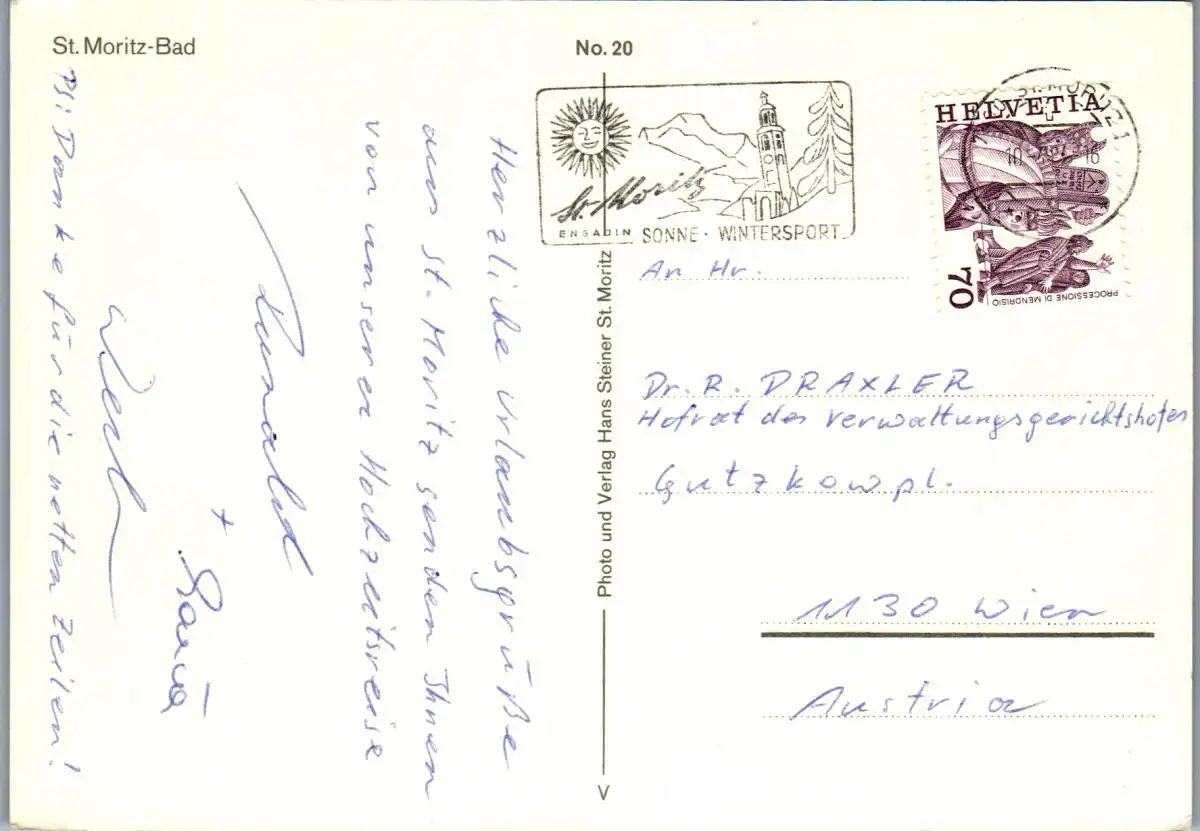 St. Moritz-Bad
No. 20
Herzliche Urlaubsgrüße
aus St. Moritz senden Ihnen
von unserer Hochzeitsreise
+
PS: Danke für die netten Zeilen!
Photo und Verlag Hans Steiner St. Moritz
V
St. Moritz
ENGADIN SONNE · WINTERSPORT
HELVETIA
70
PROCESSIONE DI MENDRISIO
An Hr.
Dr. R. DRAXLER
Hofrat des Verwaltungsgerichtshofes
Gutzkowpl.
1130 Wien
Austria